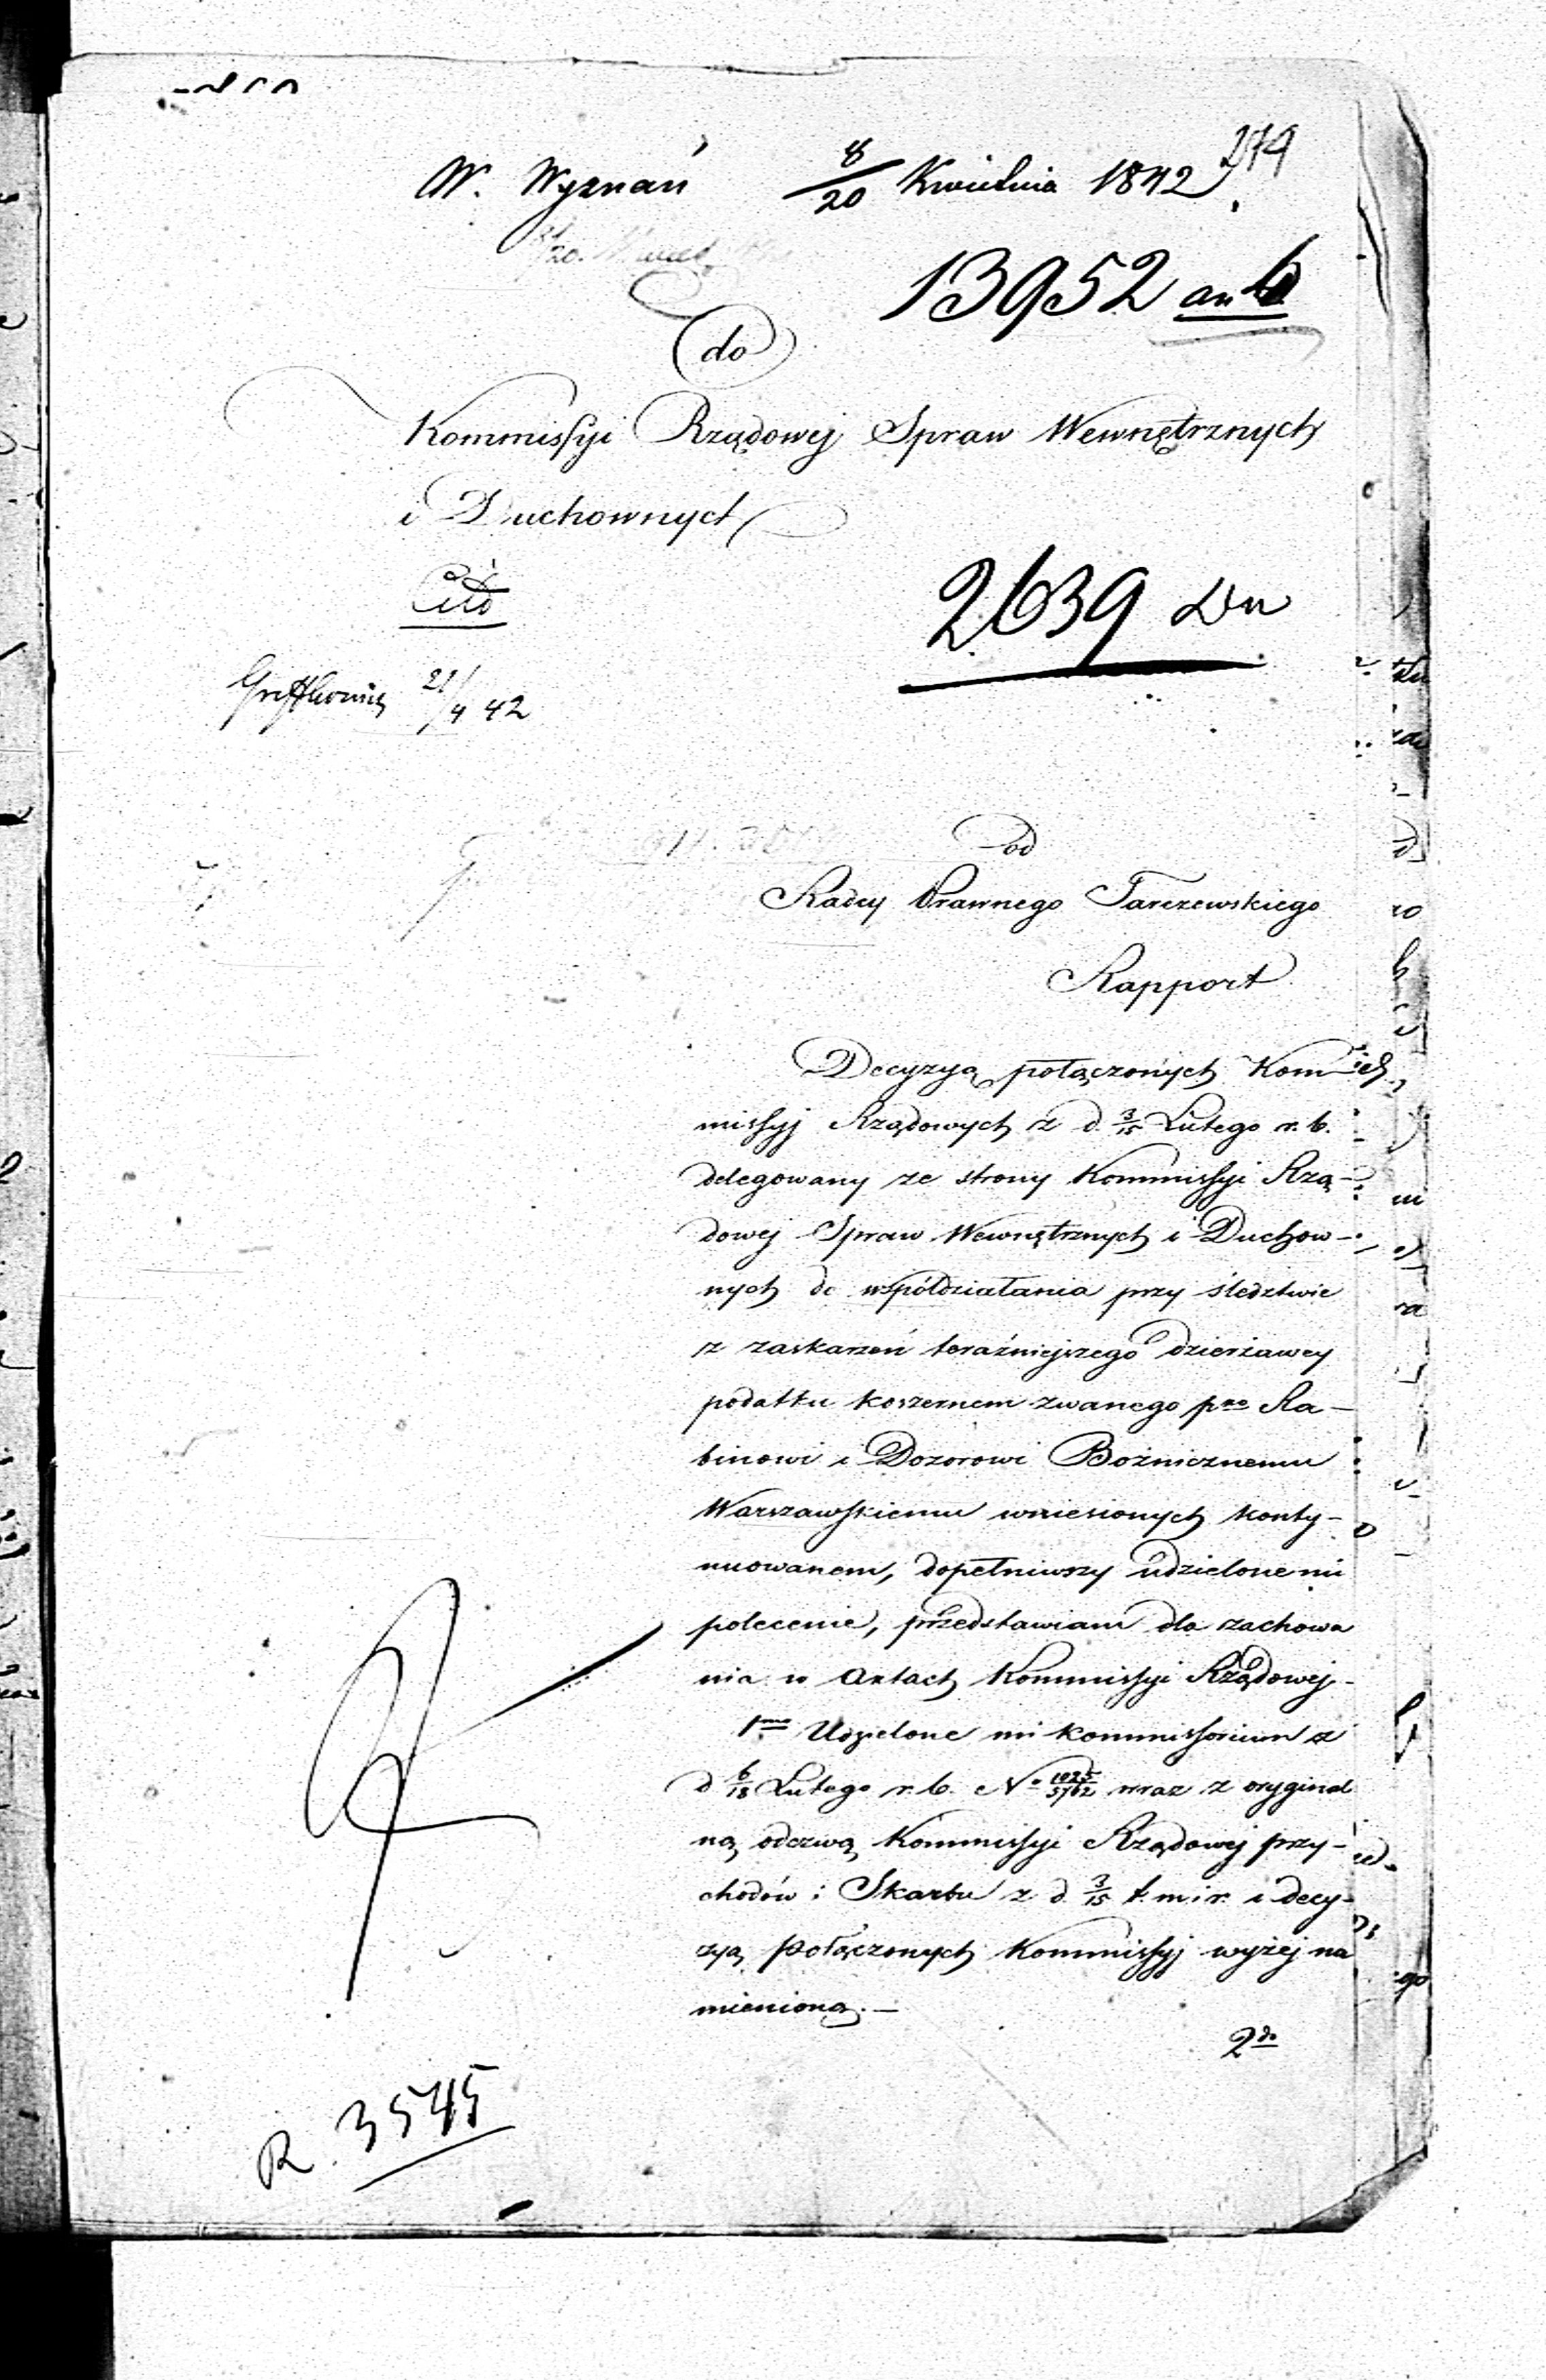 274
W. Wyznań 8/20 Kwietnia 1842
13952
do
Kommissyi Rządowej Spraw Wewnętrznych
i Duchownych
Cito
2639
21/4 42
od
Radcy Prawnego Tarczewskiego
Rapport
Decyzyą połączonych Kom-
missyj Rządowych z d. 3/15 Lutego r. b.
delegowany ze strony Kommissyi Rzą-
dowej Spraw Wewnętrznych i Duchow-
nych do współdziałania przy śledztwie
z zaskarzeń teraźniejszego dzierżawcy
podatku koszernem zwanego pko Ra-
binowi i Dozorowi Bożnicznemu
Warszawskiemu wniesionych konty-
nuowanem, dopełniwszy udzielone mi
polecenie, przedstawiam dla zachowa
nia w Aktach Kommissyi Rządowej
1mo Udzielone mi kommissorium z
d 6/18 Lutego r. b. No 1025/5762 wraz z oryginal
ną odezwą Kommissyi Rządowej przy-
chodów i Skarbu z d. 3/15 t. m i r. i decy-
zyą Połączonych Kommissyj wyżej na
mienioną. —
2do
R. 3545